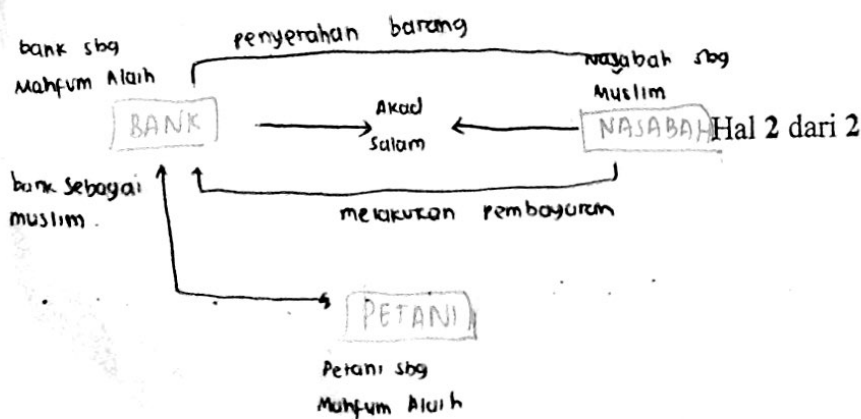 penyerahan barang
bank sbg
Mahfum Alaih
Nasabah sbg
Muslim
BANK
Akad
Salam
NASABAH
Hal 2 dari 2
bank sebagai
muslim.
melakukan pembayaran
PETANI
Petani sbg
Mahfum Alaih